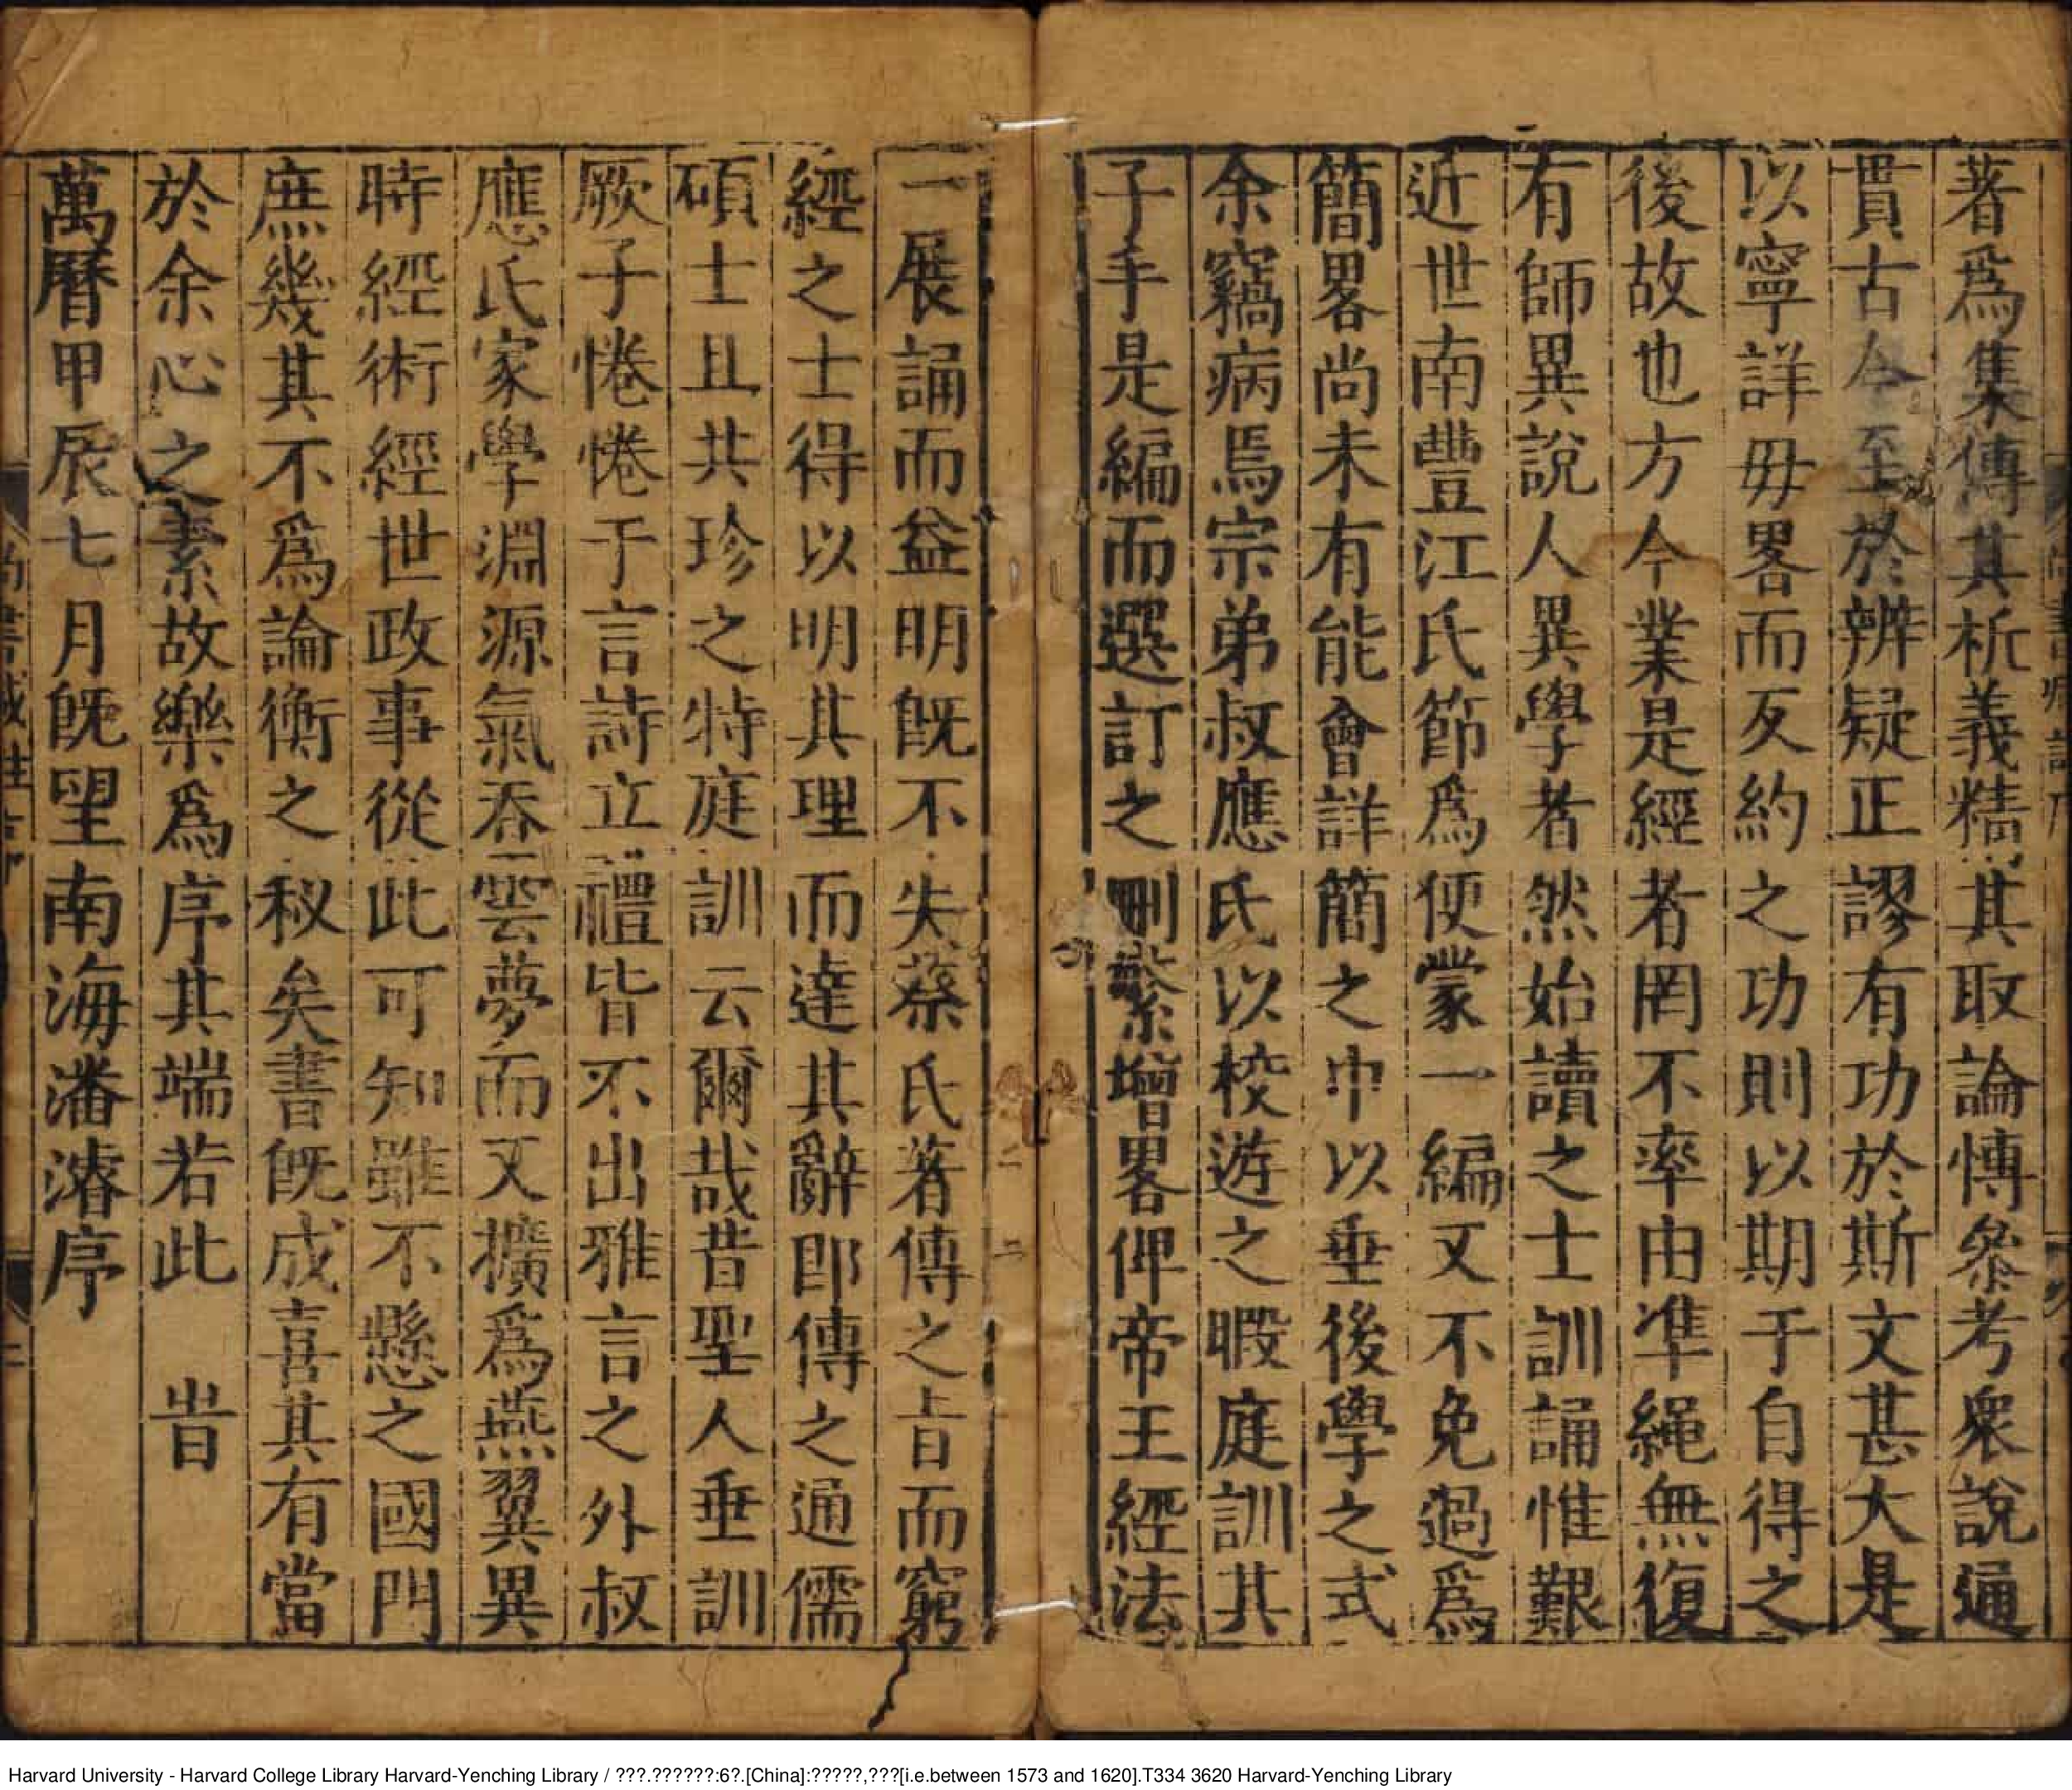 著爲集傳其析義精其取論慱叅考衆說通
貫古今至於辨疑正謬有功於斯文甚大是
以寧詳毋畧而反約之功則以期于自得之
後故也方今業是經者罔不率由凖繩無復
有師異說人異學者然始讀之士訓誦惟艱
近世南豐江氏節爲便蒙一編又不免過爲
簡畧尚未有能會詳簡之中以垂後學之式
余竊病焉宗弟叔應氏以校遊之暇庭訓其
子手是編而選訂之刪繁增畧俾帝王經法
一展誦而益明旣不失蔡氏著傳之旨而窮
經之士得以明其理而達其辭卽傳之通儒
碩士且共珍之特庭訓云爾哉昔聖人垂訓
厥子惓惓于言詩立禮皆不出雅言之外叔
應氏家學淵源氣吞雲夢而又擴爲燕翼異
時經術經世政事從此可知雖不懸之國門
庶幾其不爲論衡之秘矣書旣成喜其有當
於余心之素故樂爲序其端若此 旹
萬曆甲辰七月旣望南海潘濬序
Harvard University - Harvard College Library Harvard-Yenching Library / ???.??????:6?.[China]:?????,???[i.e.between 1573 and 1620].T334 3620 Harvard-Yenching Library